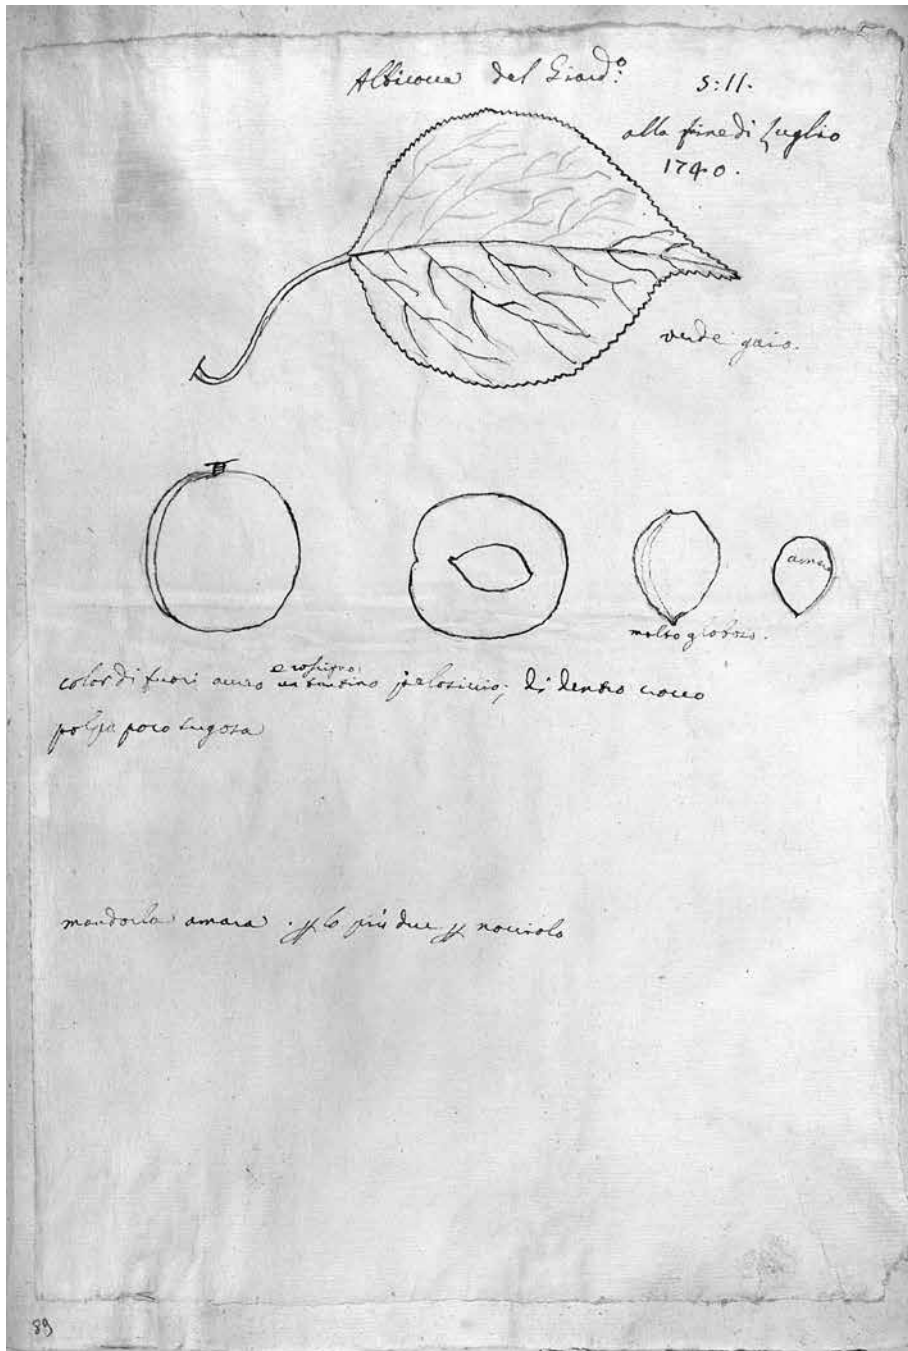 Albicocca del Giard:º
S: 11.
alla fine di Luglio
1740.
verde gaio.
amara
molto globoso.
e rossigno
color di fuori aureo un tantino pelosiccio; di dentro croceo
polpa poco sugosa
mandorla amara . lo più due nocciolo
89